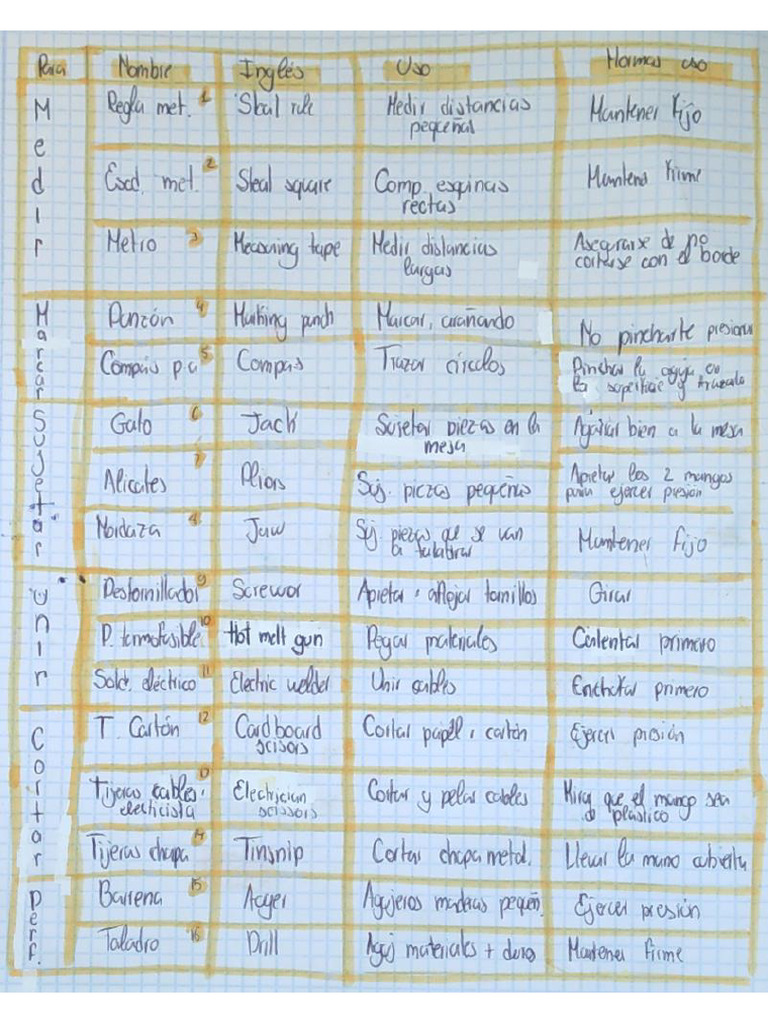 Para Nombre Inglés Uso Normas uso
Medir
Regla met. 1 Steal rule Medir distancias pequeñas Mantener fijo
Escd. met. 2 Steal square Comp. esquinas rectas Mantener firme
Metro 3 Measuring tape Medir distancias largas Asegurarse de no cortarse con el borde
Marcar
Punzón 4 Marking punch Marcar, arañando No pincharte presionar
Compás p.a 5 Compas Trazar círculos Pinchar la aguja en la superficie y trazarlo
Sujetar
Gato 6 Jack Sujetar piezas en la mesa Agarrar bien a la mesa
Alicates 7 Pliors Suj. piezas pequeñas Apretar los 2 mangos para ejercer presion
Mordaza 8 Jaw Suj. piezas que se van a taladrar Mantener fijo
Unir
Destornillador 9 Screwor Apretar, aflojar tornillos Girar
P. termofusible 10 Hot melt gun Pegar materiales Calentar primero
Sold. eléctrico 11 Electric welder Unir cables Enchufar primero
Cortar
T. Cartón 12 Cardboard scisors Cortar papél, cartón Ejercer presión
Tijeras cables, electicista 13 Electrician scissors Cortar y pelar cables Mira que el mango sea de plastico
Tijeras chapa 14 Tinsnip Cortar chapa metal. Llevar la mano cubierta
Perf.
Barrena 15 Auger Agujeros maderas pequeñ. Ejercer presión
Taladro 16 Drill Aguj materiales + duros Mantener firme